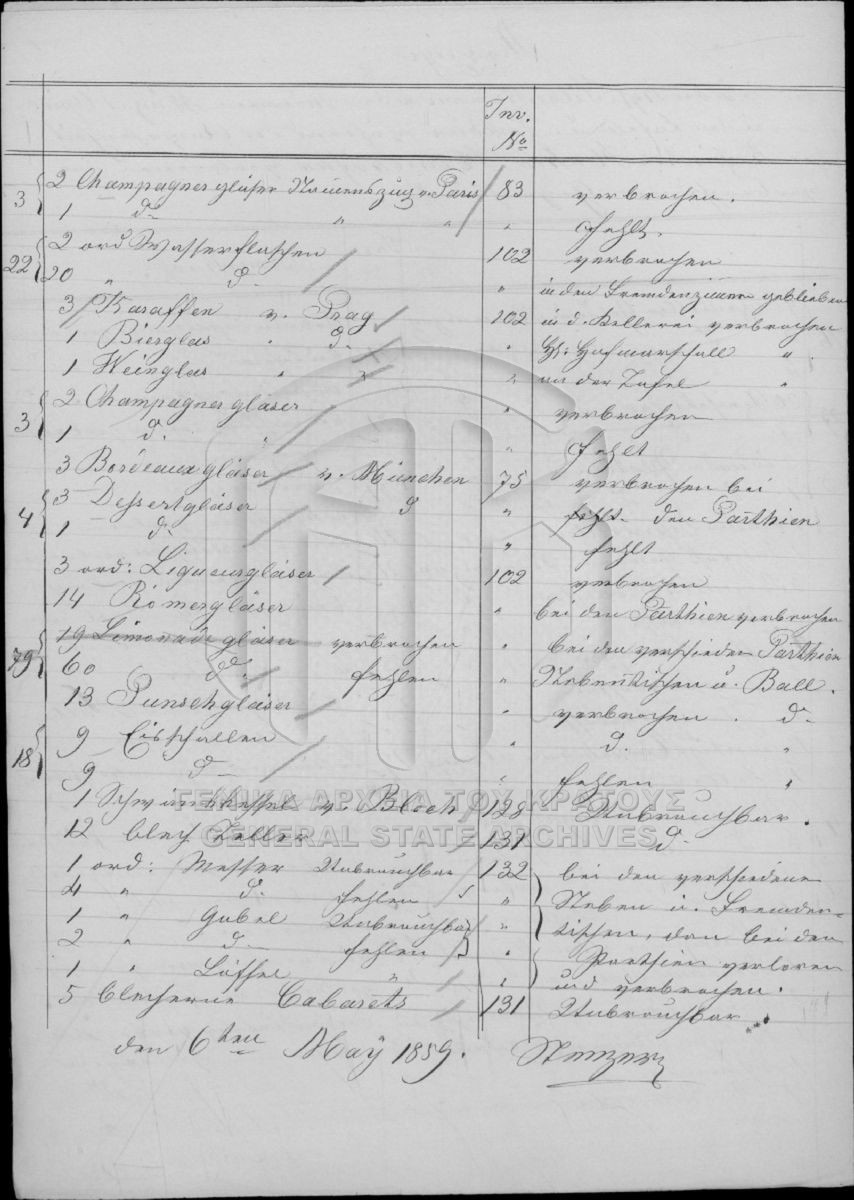 Inv.
No
3 { 2 Champagner gläser Namenszug v. Paris / 83 verbrochen.
1 do " " / " Fehlt.
22 { 2 ord Wasserflaschen / 102 verbrochen
20 " do / " in den Fremdenzimern geblieben
3 / Karaffen v. Prag 102 in d. Kellerei verbrochen
1 Bierglas " do " H: Hofmarschall "
1 Weinglas " " " an der Tafel "
3 { 2 Champagner gläser / " verbrochen
1 do " / " Fehlt
3 Bordeaux gläser / v. München 75 verbrochen bei
4 { 3 Dessertgläser / do " den Parthien
1 do / " fehlt
3 ord: Liqueurgläser / 102 verbrochen
14 Römergläser " bei den Parthien verbrochen
79 { 19 Limonade gläser verbrochen " bei den verschieden Parthien
60 do. fehlen " Nebentischen u. Ball.
13 Punschgläser / " verbrochen. do
18 { 9 Eisschallen / " do. "
9 do / " fehlen "
1 Schwänkkessel v. Blech / 128 Unbrauchbar.
12 blech Teller / 131 do
1 ord: Messer Unbrauchbar 132 bei den verschiedene
4 " do. fehlen " Neben u. Fremden-
1 " Gabel Unbrauchbar " tischen, dan bei den
2 " do fehlen " Parthien verloren
1 " Löffel " " und verbrochen.
5 blecherne Cabarets / 131 Unbrauchbar
den 6ten Maÿ 1859.
ΓΕΝΙΚΑ ΑΡΧΕΙΑ ΤΟΥ ΚΡΑΤΟΥΣ
GENERAL STATE ARCHIVES